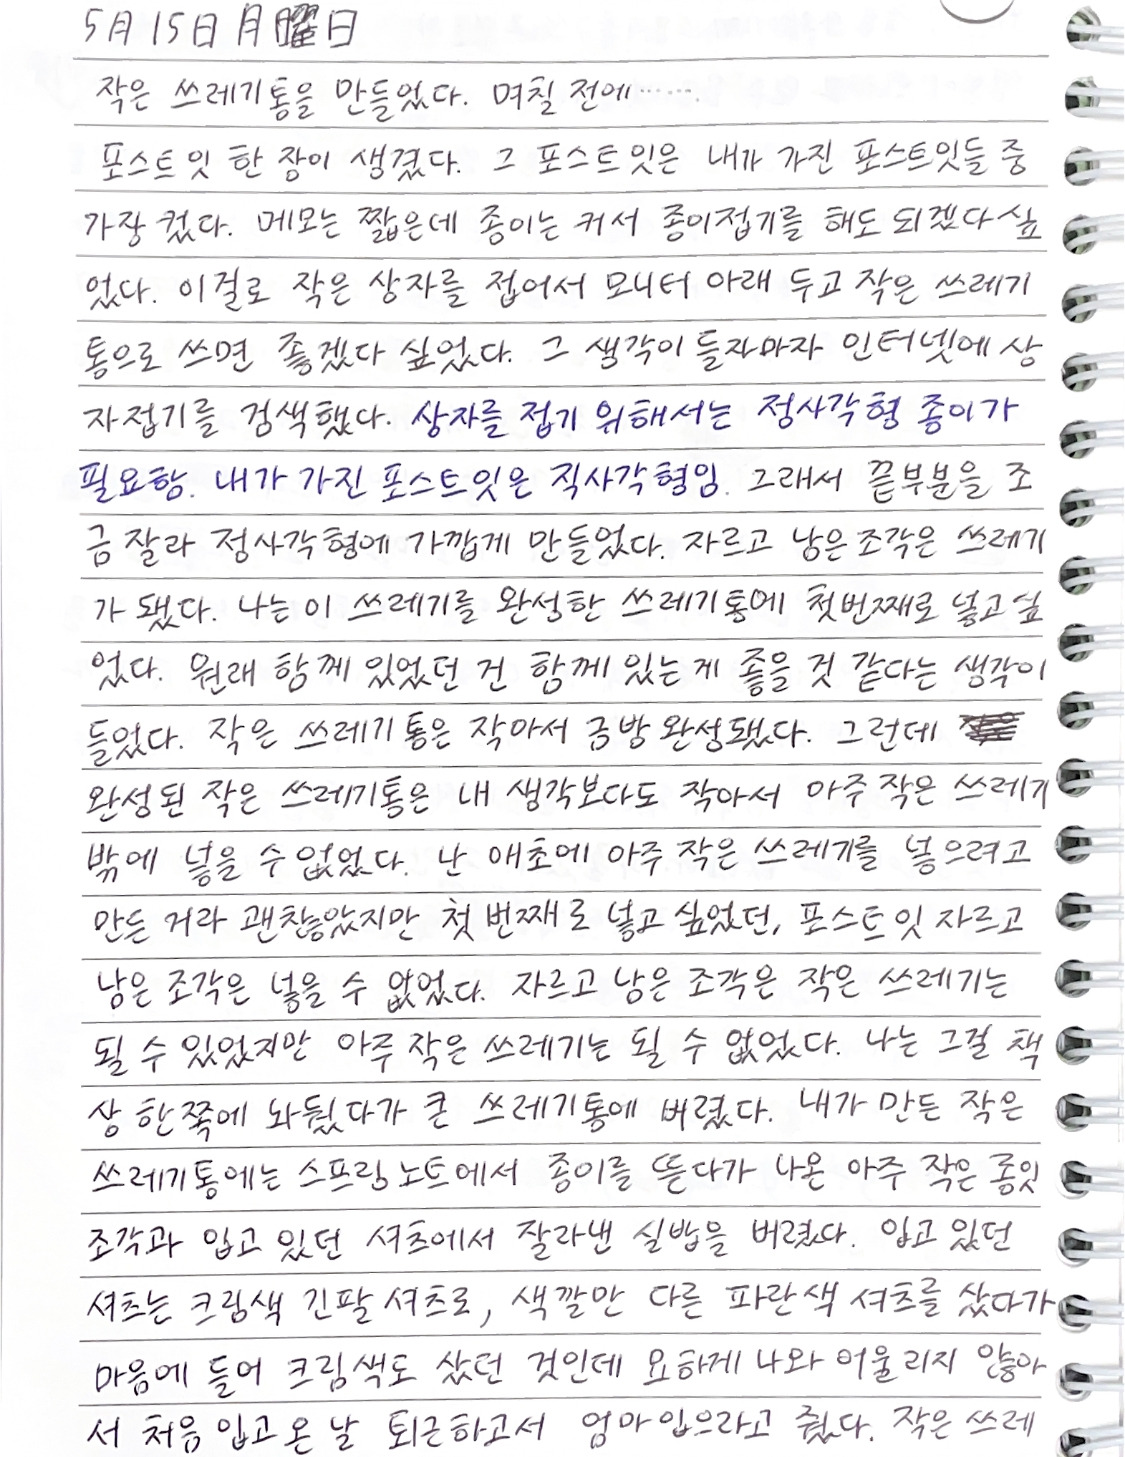 5月15日 月曜日
작은 쓰레기통을 만들었다. 며칠 전에……
포스트잇 한 장이 생겼다. 그 포스트잇은 내가 가진 포스트잇들 중
가장 컸다. 메모는 짧은데 종이는 커서 종이접기를 해도 되겠다 싶
었다. 이걸로 작은 상자를 접어서 모니터 아래 두고 작은 쓰레기
통으로 쓰면 좋겠다 싶었다. 그 생각이 들자마자 인터넷에 상
자접기를 검색했다. 상자를 접기 위해서는 정사각형 종이가
필요함. 내가 가진 포스트잇은 직사각형임. 그래서 끝부분을 조
금 잘라 정사각형에 가깝게 만들었다. 자르고 남은 조각은 쓰레기
가 됐다. 나는 이 쓰레기를 완성한 쓰레기통에 첫번째로 넣고 싶
었다. 원래 함께 있었던 건 함께 있는 게 좋을 것 같다는 생각이
들었다. 작은 쓰레기통은 작아서 금방 완성됐다. 그런데
완성된 작은 쓰레기통은 내 생각보다도 작아서 아주 작은 쓰레기
밖에 넣을 수 없었다. 난 애초에 아주 작은 쓰레기를 넣으려고
만든 거라 괜찮았지만 첫 번째로 넣고 싶었던, 포스트잇 자르고
남은 조각은 넣을 수 없었다. 자르고 남은 조각은 작은 쓰레기는
될 수 있었지만 아주 작은 쓰레기는 될 수 없었다. 나는 그걸 책
상 한쪽에 놔뒀다가 큰 쓰레기통에 버렸다. 내가 만든 작은
쓰레기통에는 스프링노트에서 종이를 뜯다가 나온 아주 작은 종잇
조각과 입고 있던 셔츠에서 잘라낸 실밥을 버렸다. 입고 있던
셔츠는 크림색 긴팔 셔츠로, 색깔만 다른 파란색 셔츠를 샀다가
마음에 들어 크림색도 샀던 것인데 묘하게 나와 어울리지 않아
서 처음 입고 온 날 퇴근하고서 엄마 입으라고 줬다. 작은 쓰레